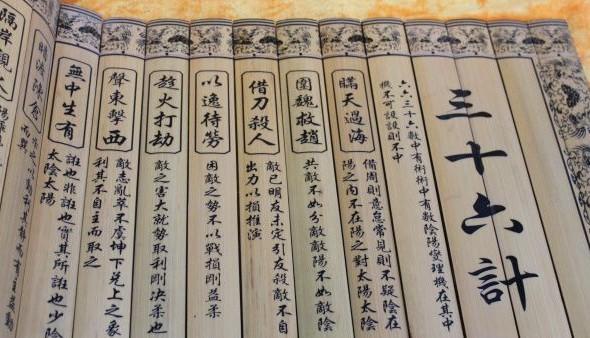 三十六計
六六三十六數中有術術中有數陰陽燮理機在其中
機不可設設則不中
瞞天過海
備周則意怠常見則不疑陰在
陽之內不在陽之對太陽太陰
圍魏救趙
共敵不如分敵敵陽不如敵陰
借刀殺人
敵已明友未定引友殺敵不自
出力以損推演
以逸待勞
困敵之勢不以戰損剛益柔
趁火打劫
敵之害大就勢取利剛決柔也
聲東擊西
敵志亂萃不虞坤下兌上之象
利其不自主而取之
無中生有
誑也非誑也實其所誑也少陰
太陰太陽
暗渡陳倉
隔岸觀火